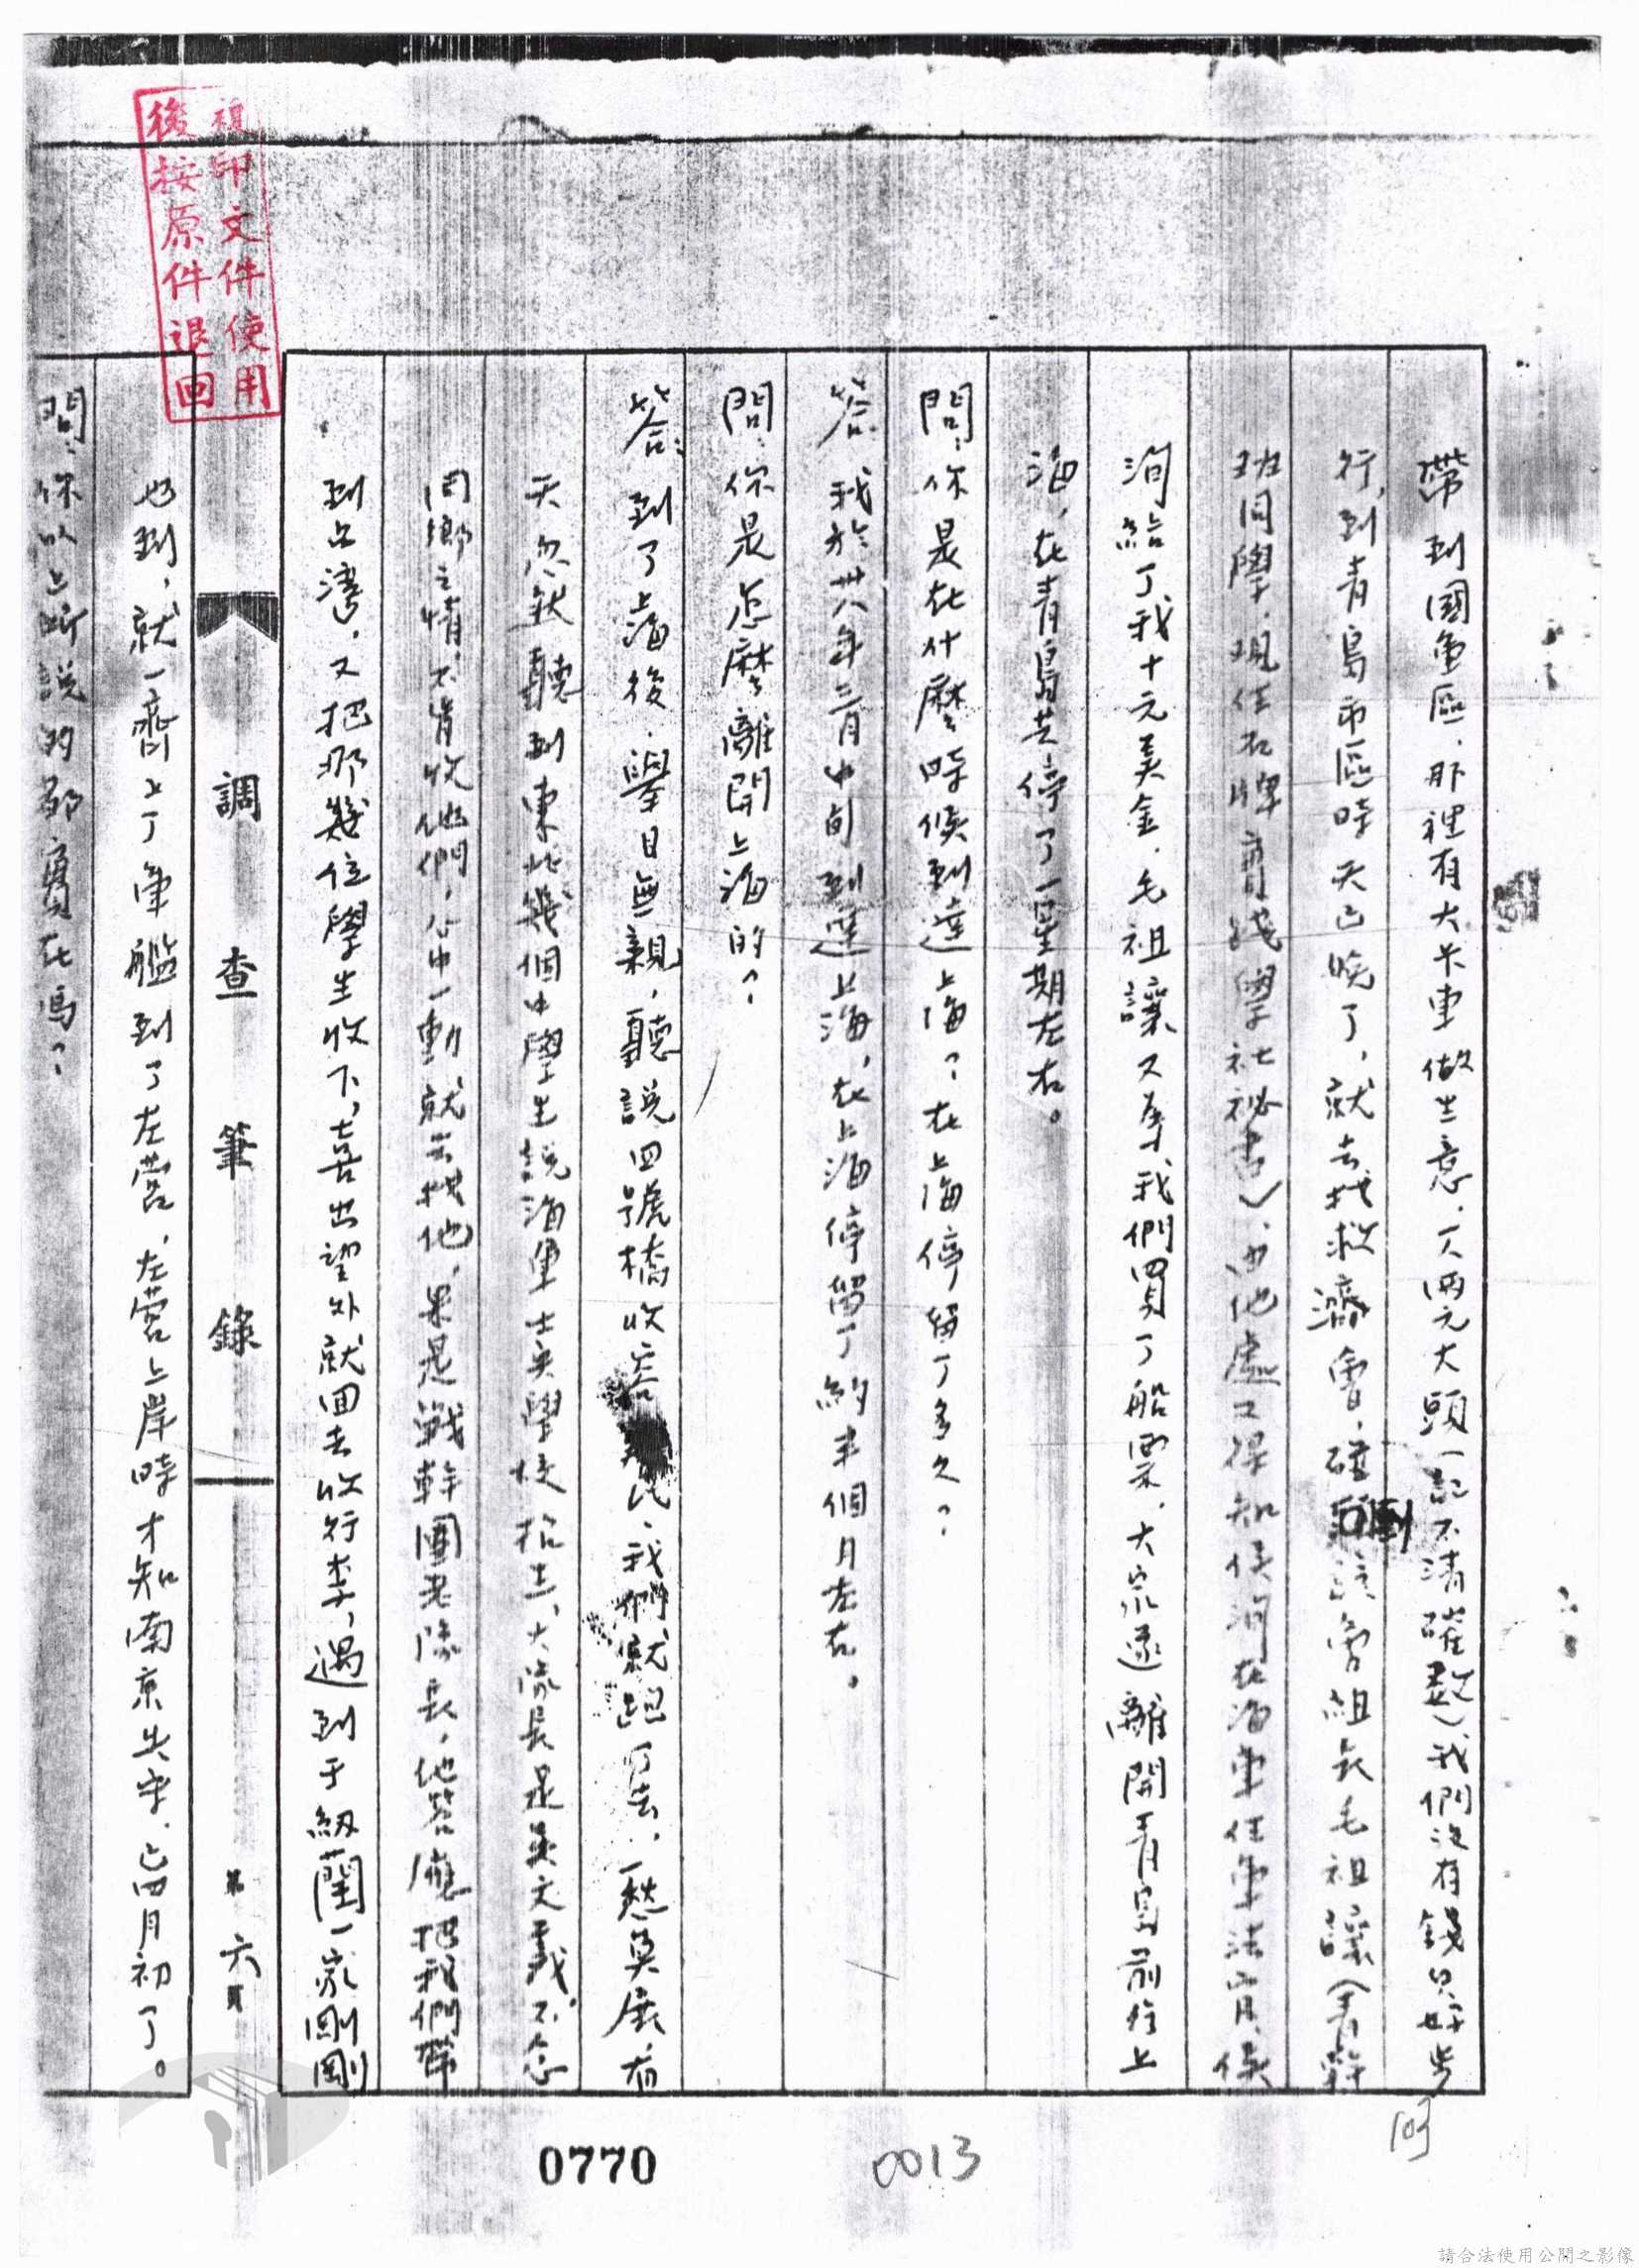 複印文件使用
後按原件退回
帶到國軍區，那裡有大卡車做生意，一人兩元大頭（記不清確數）我們沒有錢只好步
行，到青島市區時天已晚了，就去找救濟會，碰到該會組長毛祖讓（青幹
班同學，現任石牌實踐學社秘書），由他處又得知侯洵在海軍任軍法官，侯
洵給了我十元美金，毛祖讓又為我們買了船票，大家遂離開青島前往上
海，在青島共停了一星期左右。
問：你是在什麼時候到達上海？在上海停留了多久？
答：我於卅八年三月中旬到達上海，在上海停留了約半個月左右。
問：你是怎麼離開上海的？
答：到了上海後，舉目無親，聽說四號橋收容難民，我們就跑了去，一愁莫展，有
天忽然聽到東北幾個中學生說海軍士兵學校招生，大隊長是吳文義，不念
同鄉之情，不肯收他們，心中一動就去找他，果是戰幹團老隊長，他答應把我們帶
到台灣，又把那幾位學生收下，喜出望外就回去收行李，遇到于紉蘭一家剛剛
調查筆錄
第六頁
也到，就一齊上了軍艦到了左營，左營上岸時才知南京失守，已四月初了。
問：你以上所說的都實在嗎？
0770
0013
103
請合法使用公開之影像